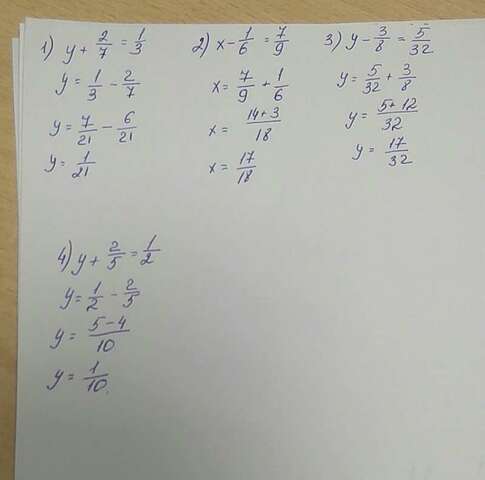 1) y + 2/7 = 1/3
y = 1/3 - 2/7
y = 7/21 - 6/21
y = 1/21
2) x - 1/6 = 7/9
x = 7/9 + 1/6
x = (14+3)/18
x = 17/18
3) y - 3/8 = 5/32
y = 5/32 + 3/8
y = (5+12)/32
y = 17/32
4) y + 2/5 = 1/2
y = 1/2 - 2/5
y = (5-4)/10
y = 1/10.